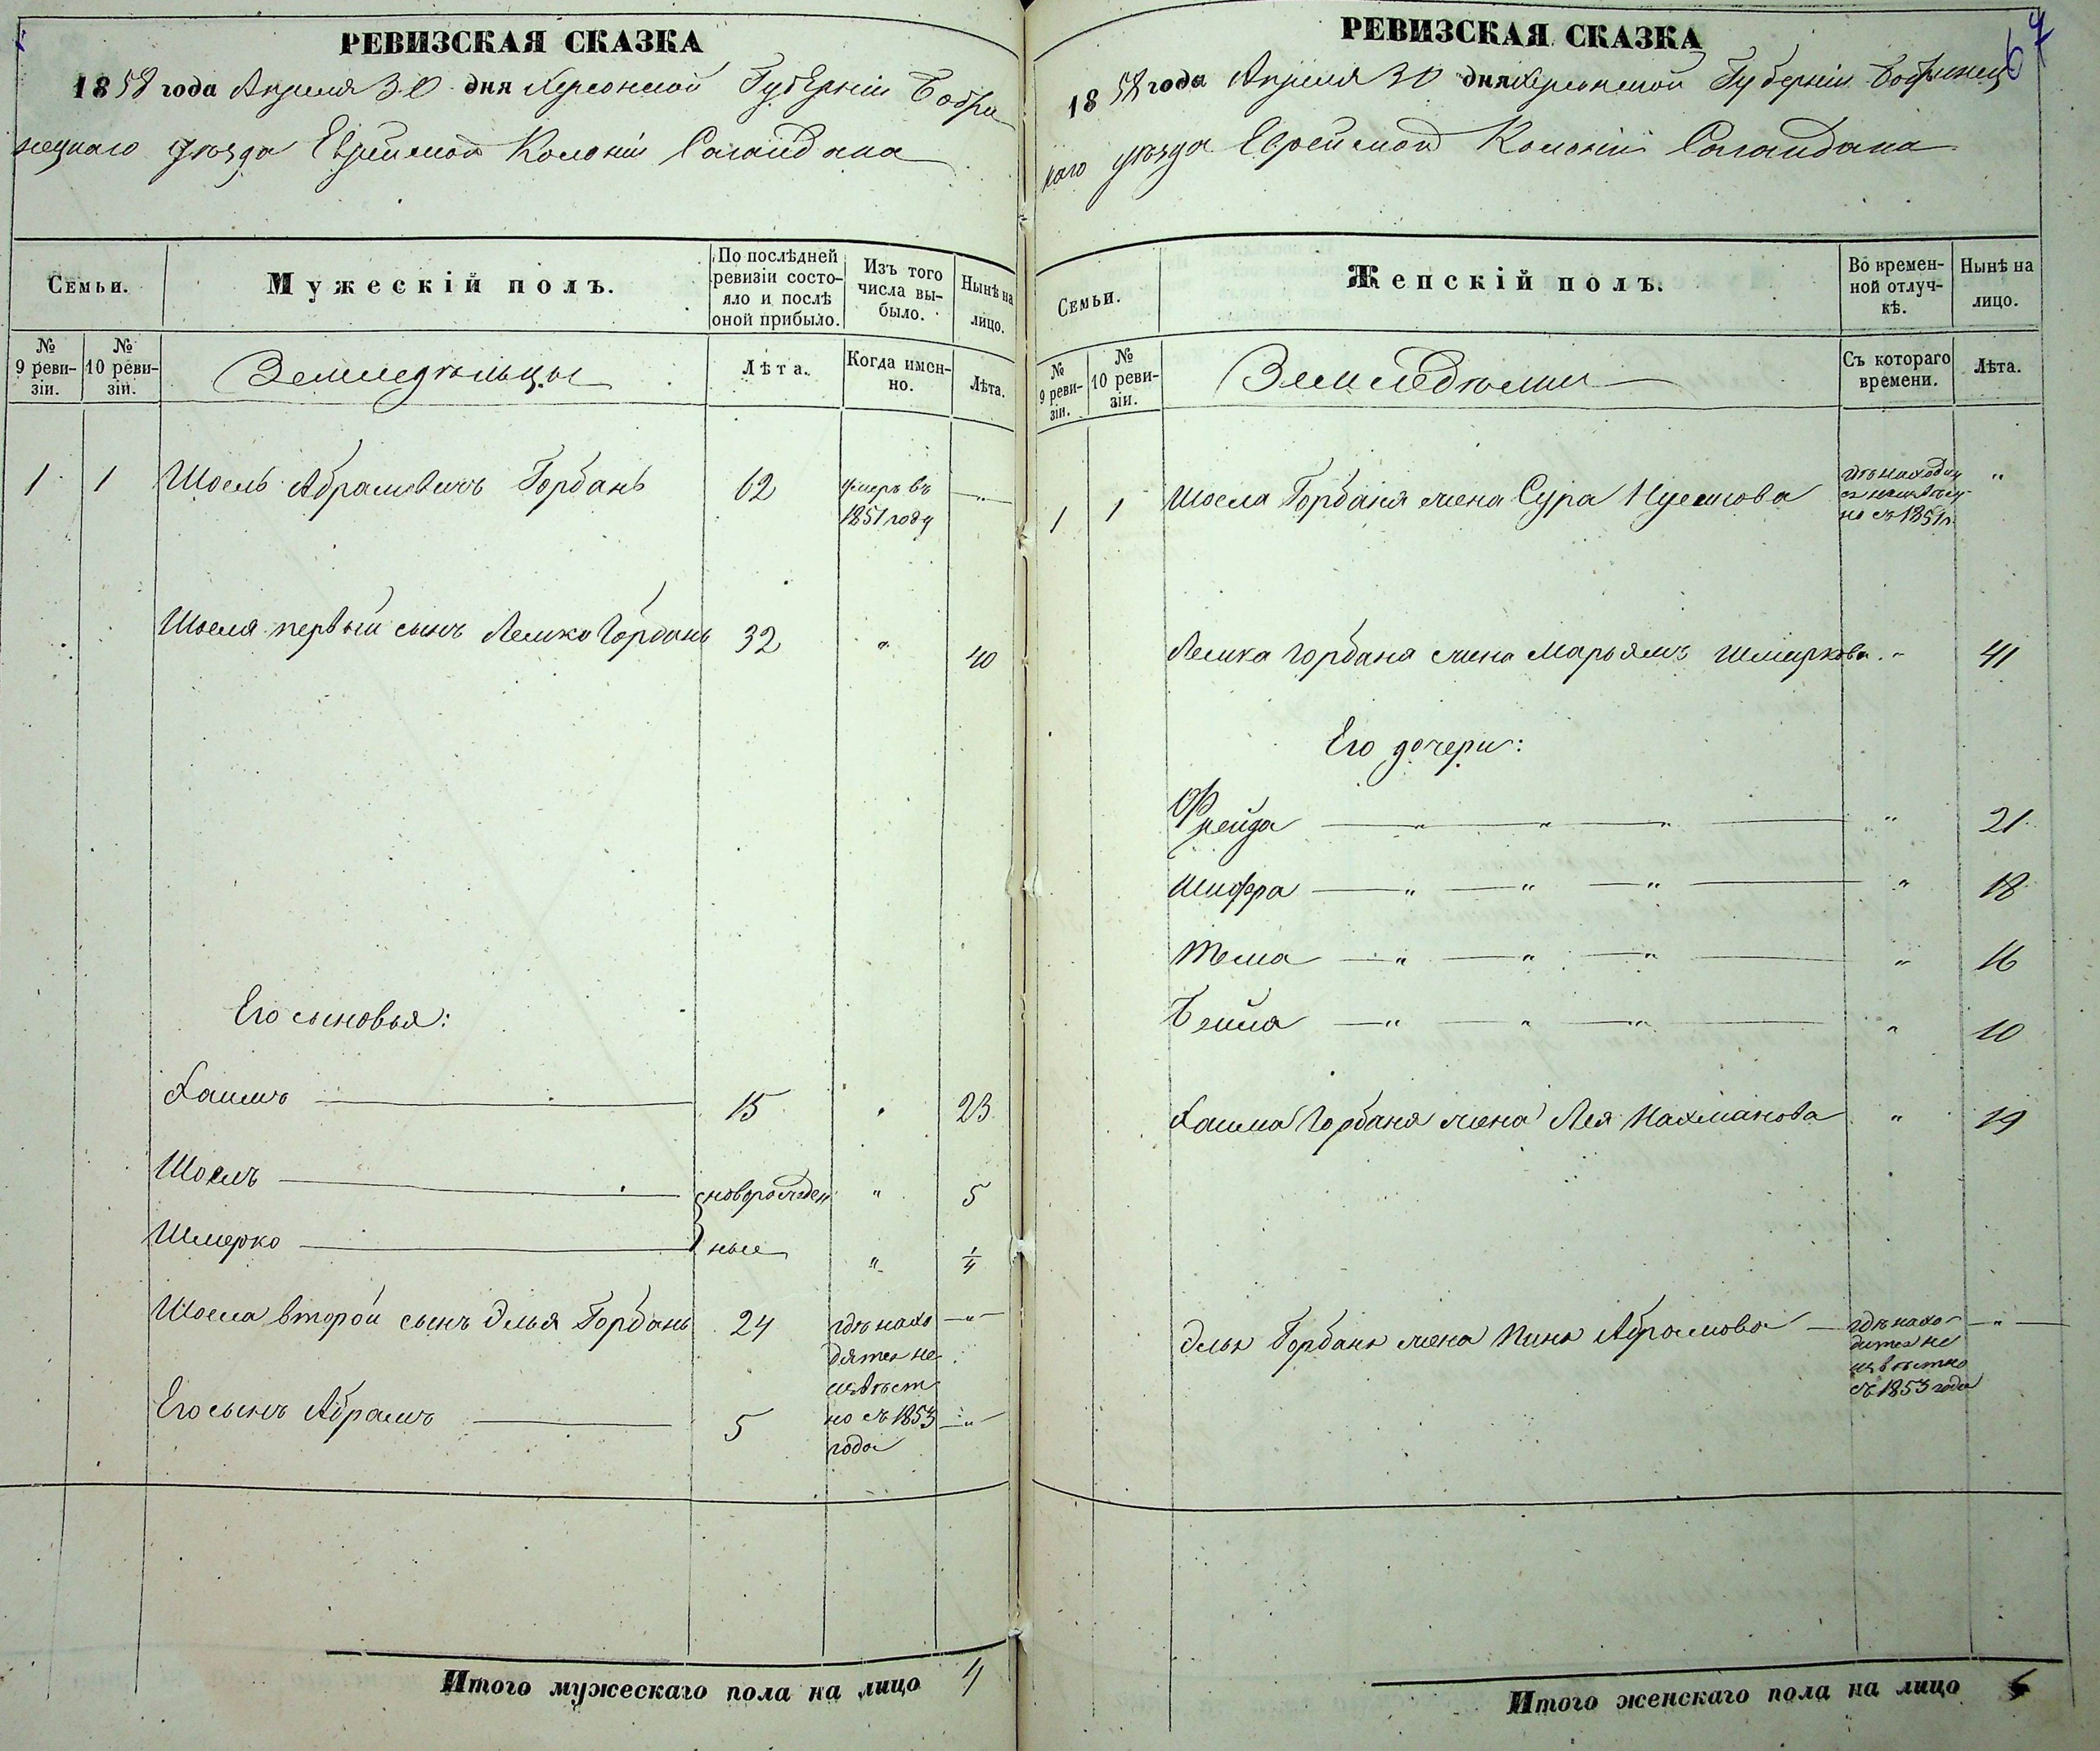 РЕВИЗСКАЯ СКАЗКА
1858 года Апреля 30 дня Херсонской Губерніи Бобри
нецкаго уѣзда Еврейской Колоніи Сагайдака
Семьи.
Мужескій полъ.
По послѣдней ревизіи состояло и послѣ оной прибыло.
Изъ того числа выбыло.
Нынѣ на лицо.
№ 9 ревизіи.
№ 10 ревизіи.
Земледѣльцы
Лѣта.
Когда именно.
Лѣта.
1 1 Шоель Абрамовичъ Горбань 62 умеръ въ — " —
1851 году
Шоеля первый сынъ Лейко Горбань 32 " 40
Его сыновья:
Хаимъ — 15 " 23
Шоель — новорожден " 5
Шмерко — ные " 1/4
Шоеля второй сынъ Элья Горбань 24 гдѣ нахо — " —
дятся не
извѣст
Его сынъ Абрамъ — 5 но съ 1853 — " —
года
Итого мужескаго пола на лицо 4
67
РЕВИЗСКАЯ СКАЗКА
1858 года Апреля 30 дня Херсонской Губерніи Бобринец
каго уѣзда Еврейской Колоніи Сагайдака
Семьи.
Женскій полъ.
Во временной отлучкѣ.
Нынѣ на лицо.
№ 9 ревизіи.
№ 10 ревизіи.
Земледѣльцы
Съ котораго времени.
Лѣта.
1 1 Шоеля Горбаня жена Сура гдѣ находит "
ся неизвѣст
но съ 1851 г.
Лейка Горбаня жена Марьямъ Шмеркова " 41
Его дочери:
Фрейда — " — " — " — " 21
Шифра — " — " — " — " 18
Тема — " — " — " — " 16
Бейла — " — " — " — " 10
Хаима Горбаня жена Лея Нахманова " 19
Элья Горбаня жена Абрамова — гдѣ нахо — " —
дится не
извѣстно
съ 1853 года
Итого женскаго пола на лицо 6